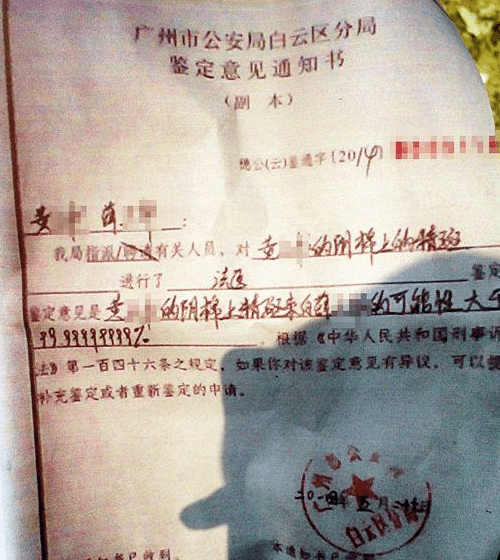 广州市公安局白云区分局
鉴定意见通知书
（副 本）
穗公(云)鉴通字〔2014〕
黄
我局指派/聘请有关人员，对 黄 的阴棉上的精斑
进行了 法医 鉴定
鉴定意见是 黄 的阴棉上精斑来自 的可能性大于
99.99999999%
。根据《中华人民共和国刑事诉
法》第一百四十六条之规定，如果你对该鉴定意见有异议，可以
补充鉴定或者重新鉴定的申请。
月
本通知书已